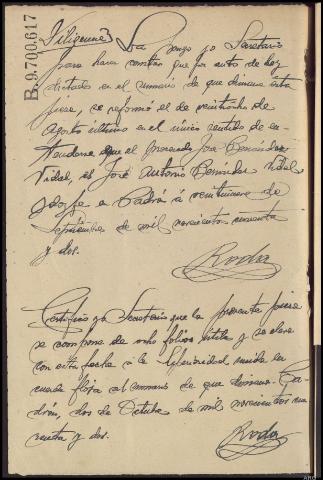 B.9.700,617
Diligencia} La pongo yo Secretario
para hacer constar que por auto de hoy
dictado en el sumario de que dimana esta
pieza, se reformó el de veintiocho de
Agosto último en el único sentido de en-
tenderse que el procesado José Bermúdez
Vidal, es José Antonio Bermúdez Vidal
doy fe a Padrón á veintinueve de
Septiembre de mil novecientos cuarenta
y dos.
Roda
Certifico yo Secretario que la presente pieza
se compone de ocho folios útiles y se eleva
con esta fecha a la Superioridad unida en
cuerda floja al sumario de que dimana. Pa-
drón, dos de Octubre de mil novecientos cua
renta y dos.
Roda